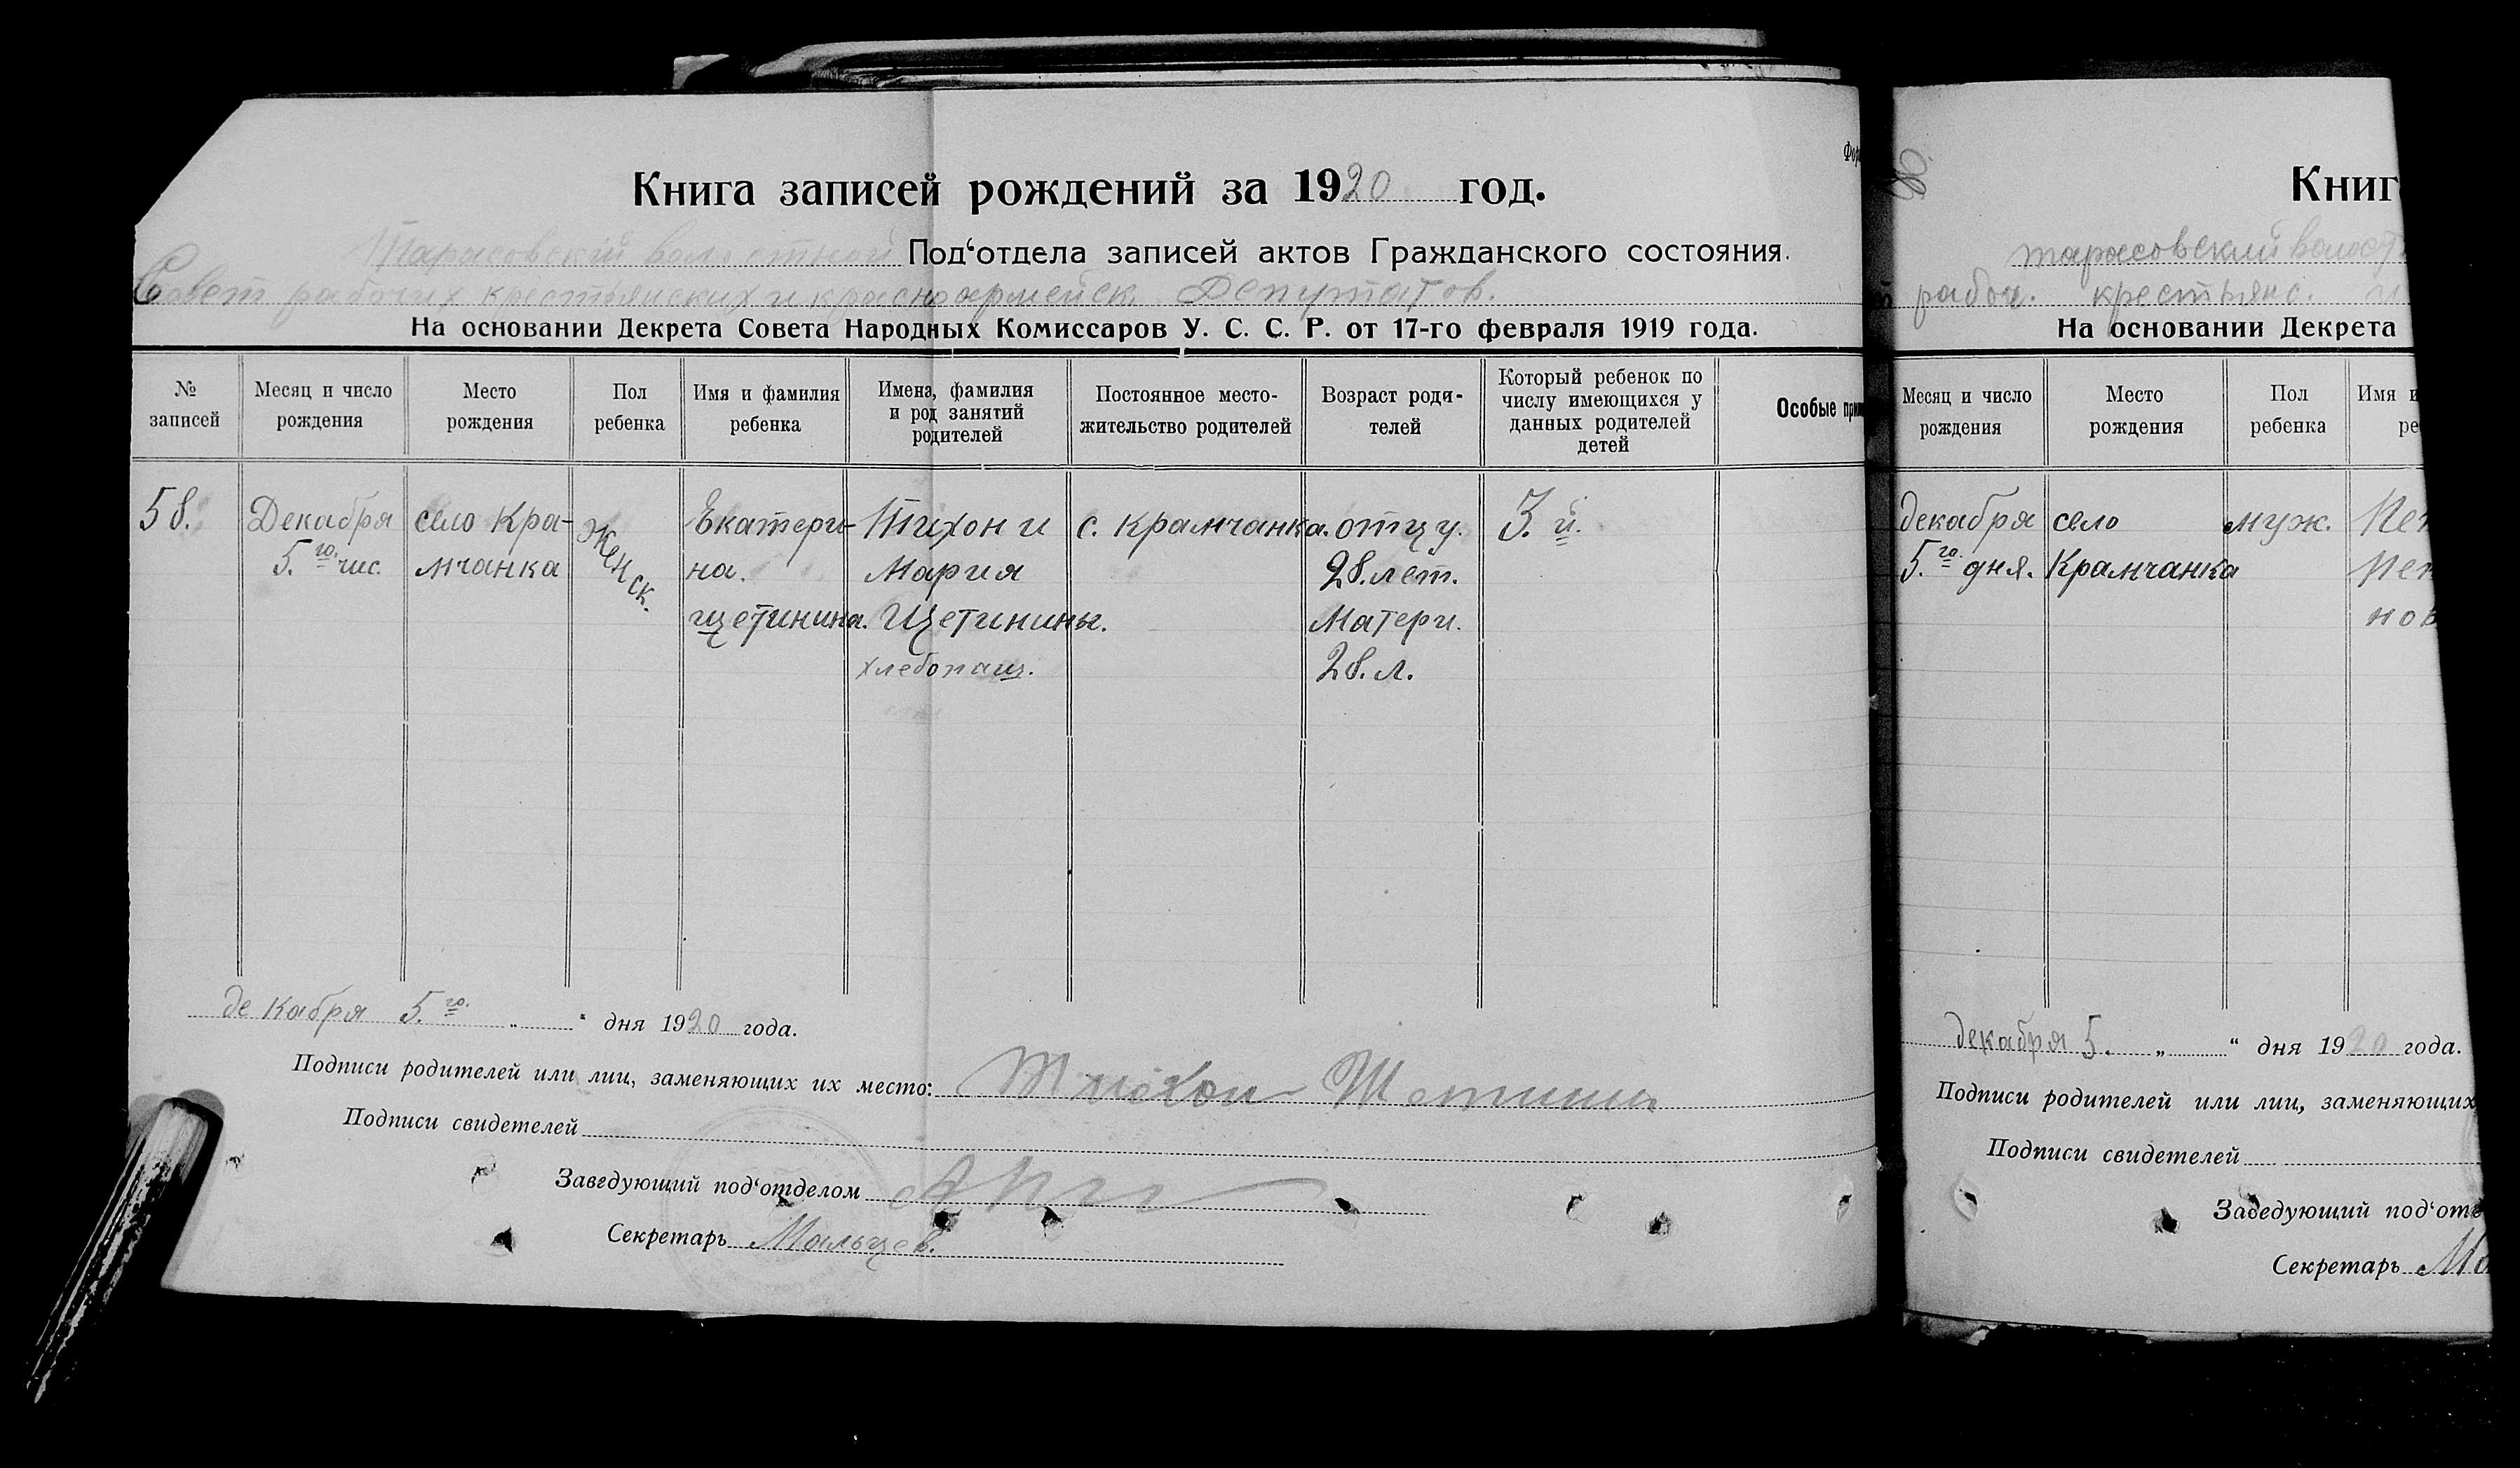 Фор
Книга записей рождений за 1920 год.
Тарасовский волостной Под‘отдела записей актов Гражданского состояния.
Совет рабочих крестьянских и красноармейск Депутатов.
На основании Декрета Совета Народных Комиссаров У. С. С. Р. от 17-го февраля 1919 года.
№ записей
Месяц и число рождения
Место рождения
Пол ребенка
Имя и фамилия ребенка
Имена, фамилия и род занятий родителей
Постоянное место-жительство родителей
Возраст роди-телей
Который ребенок по числу имеющихся у данных родителей детей
Особые при
58.
Декабря
5.го чис.
село Кра-
мчанка
Женск.
Екатери-
на.
щетинина.
Тихон и
Мария
Щетинины.
хлебопащ.
с. Крамчанка.
отцу.
28. лет.
Матери.
28. л.
3. й.
декабря 5.го „ “ дня 1920 года.
Подписи родителей или лиц, заменяющих их место: Тихон Щетинин
Подписи свидетелей
Заведующий под‘отделом
Секретарь Мальцев.
Книг
тарасовский волост
рабоч. крестьянс. и
На основании Декрета
Месяц и число рождения
Место рождения
Пол ребенка
Имя и
ре
декабря
5.го дня.
село
Крамчанка
муж.
нов
декабря 5. „ “ дня 1920 года.
Подписи родителей или лиц, заменяющих
Подписи свидетелей
Заведующий под‘отд
Секретарь Ма